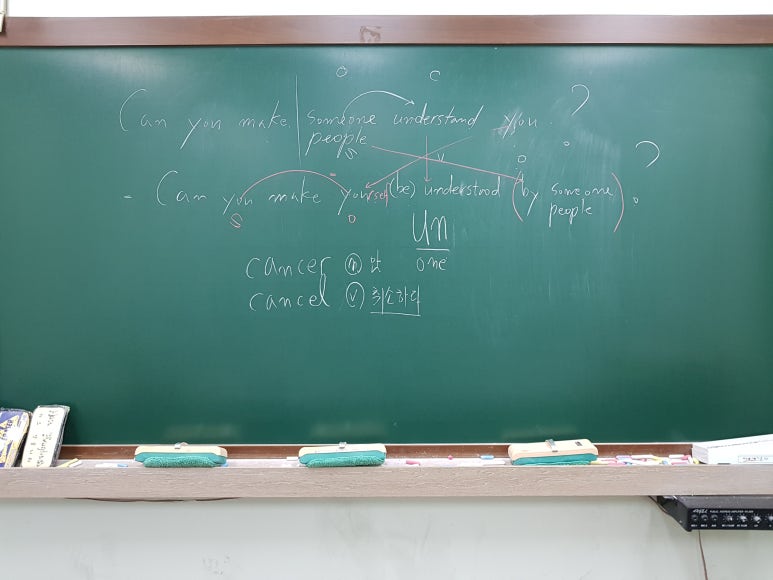 O C
Can you make someone understand you?
people
S V O
= Can you make yourself (be) understood (by someone
people)?
S O
UN
one
cancer ⓝ 암
cancel ⓥ 취소하다